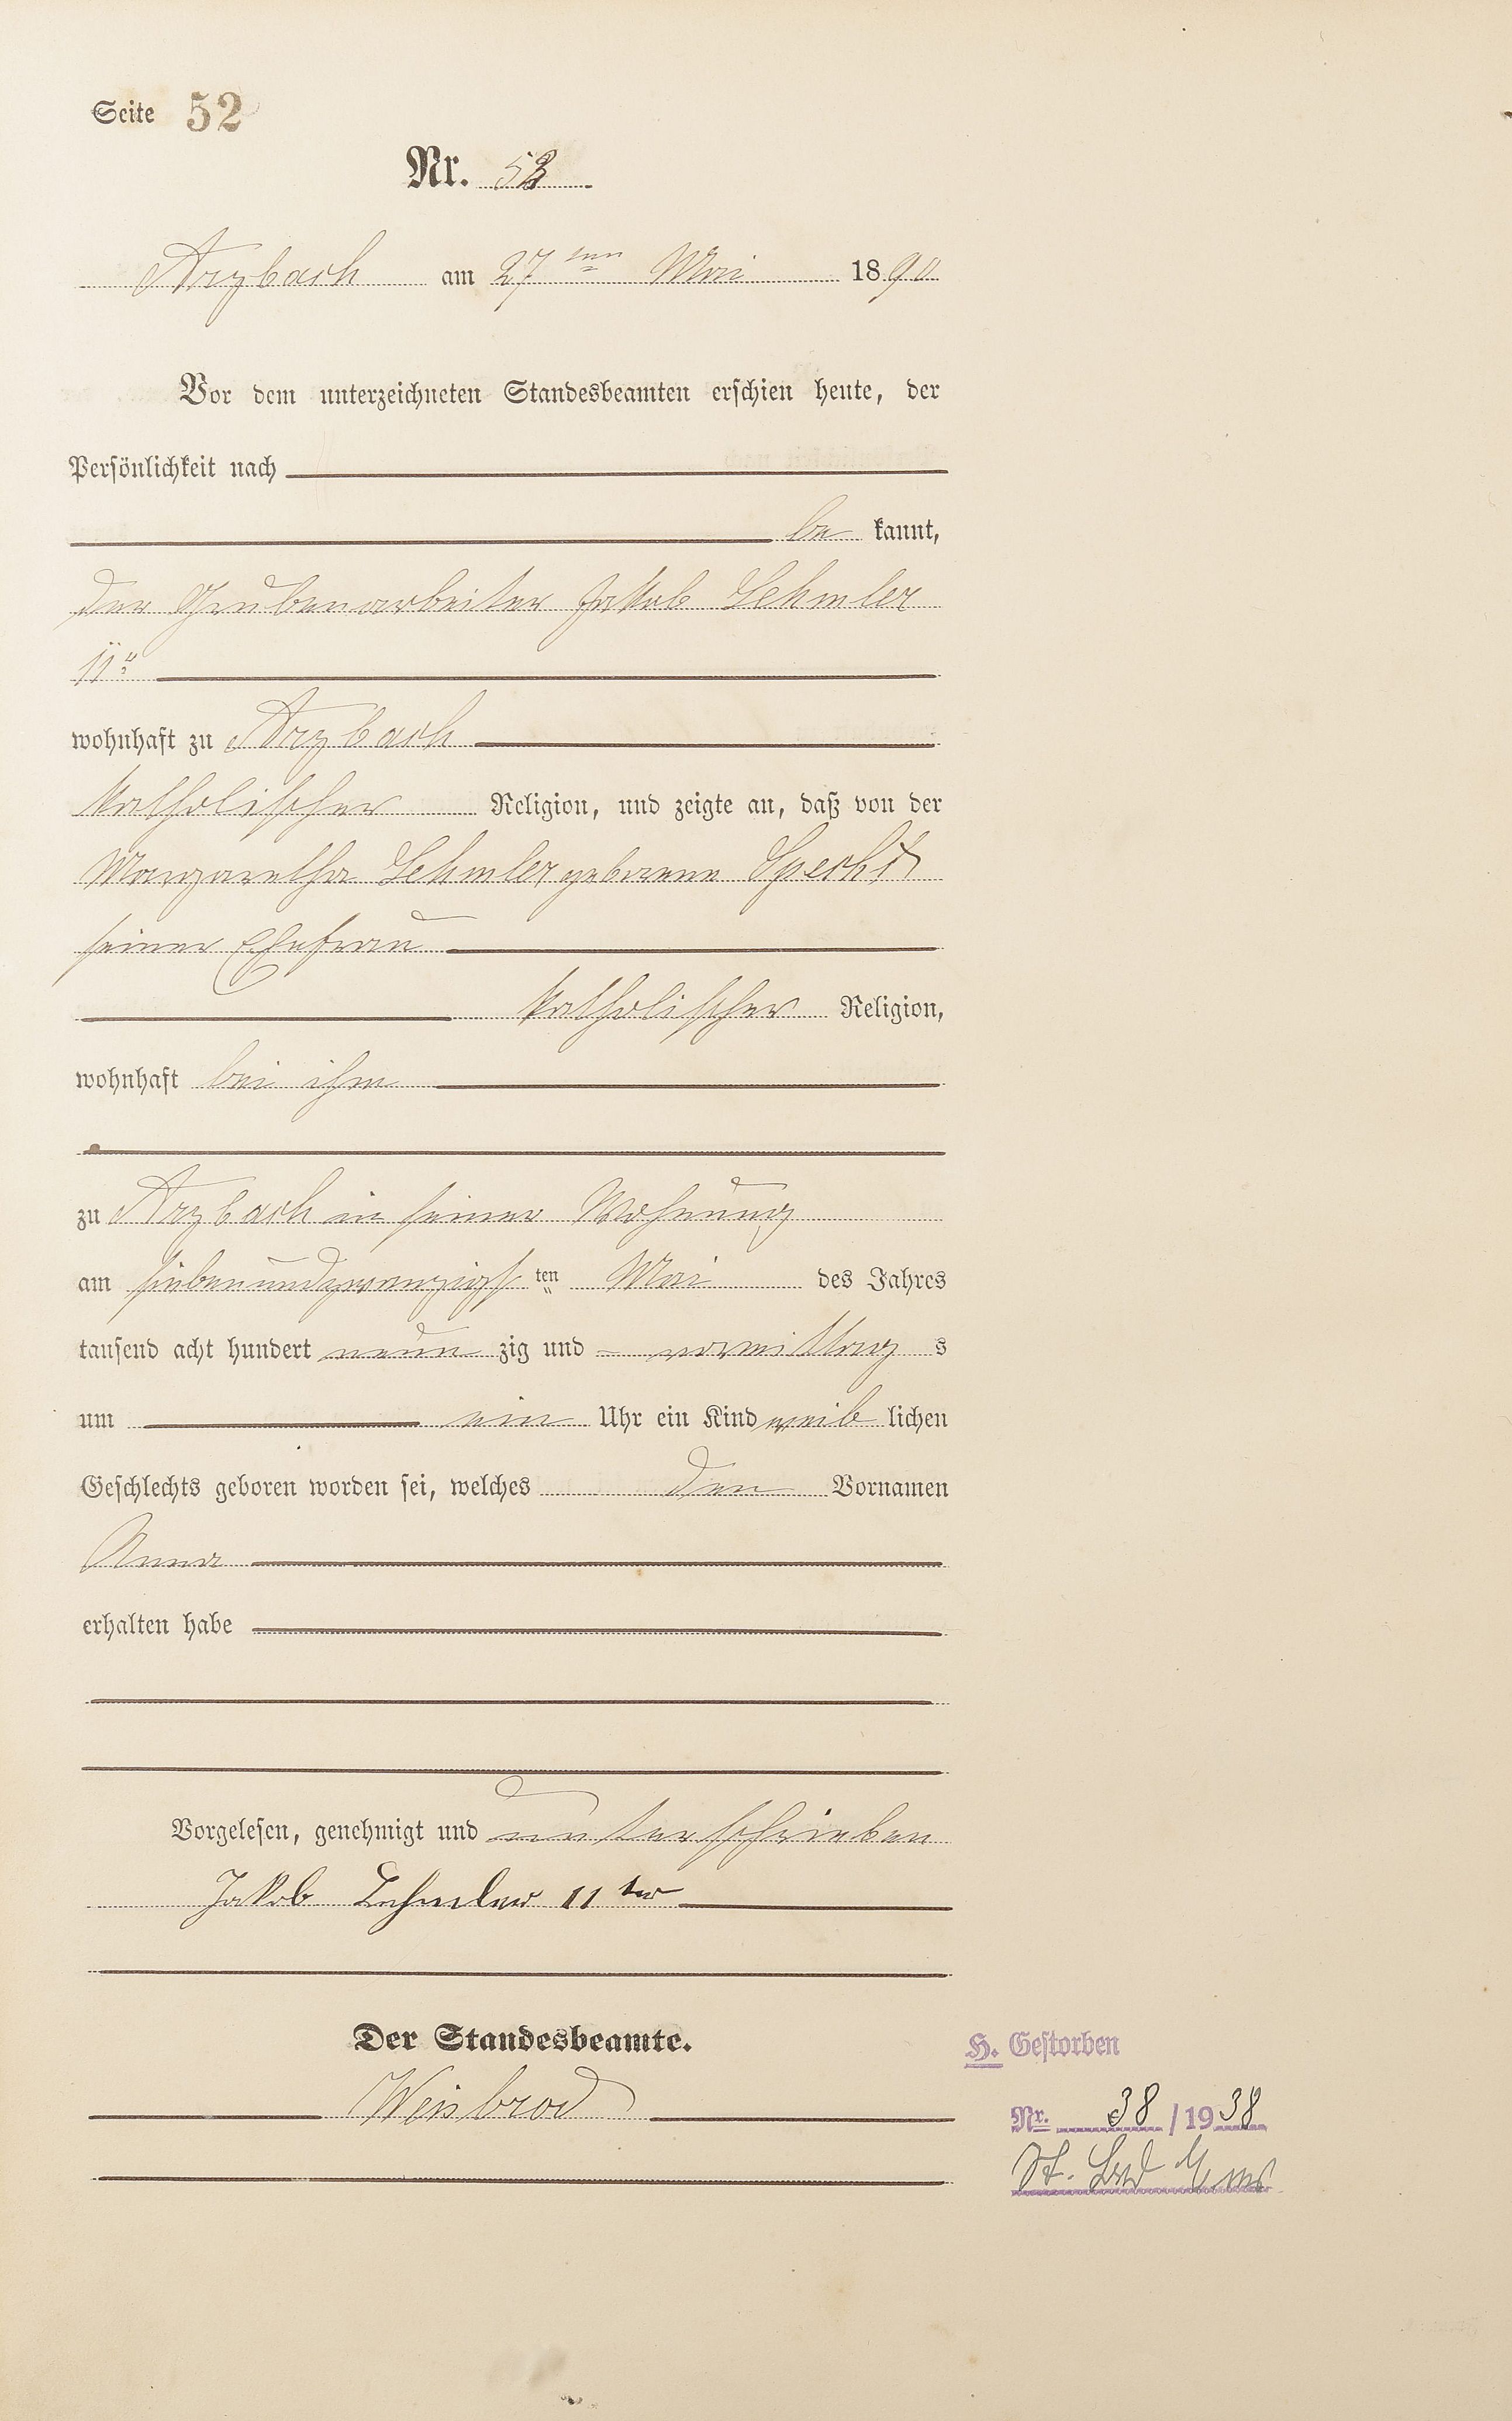 Seite 52
Nr. 52
Arzbach am 27ten Mai 1890
Vor dem unterzeichneten Standesbeamten erschien heute, der
Persönlichkeit nach
be kannt,
der Grubenarbeiter Jakob Lehmler
11er
wohnhaft zu Arzbach
katholischer Religion, und zeigte an, daß von der
Margaretha Lehmler geborene Specht
seiner Ehefrau
katholischer Religion,
wohnhaft bei ihm
zu Arzbach in seiner Wohnung
am siebenundzwanzigsten Mai des Jahres
tausend acht hundert neun zig und – vormittag s
um ein Uhr ein Kind weib lichen
Geschlechts geboren worden sei, welches den Vornamen
Anna
erhalten habe
Vorgelesen, genehmigt und unterschrieben
Jakob Lehmler 11ter
Der Standesbeamte.
Weisbrod
H. Gestorben
Nr. 38 / 1938
St. Bad Ems